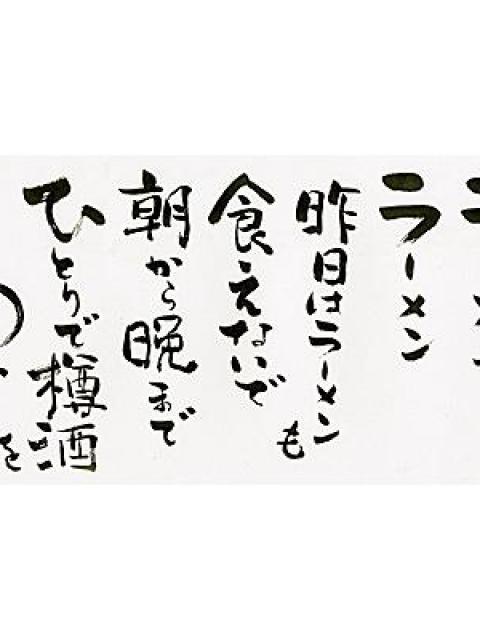 ラーメン
昨日はラーメンも
食えないで
朝から晩まで
ひとりで樽酒